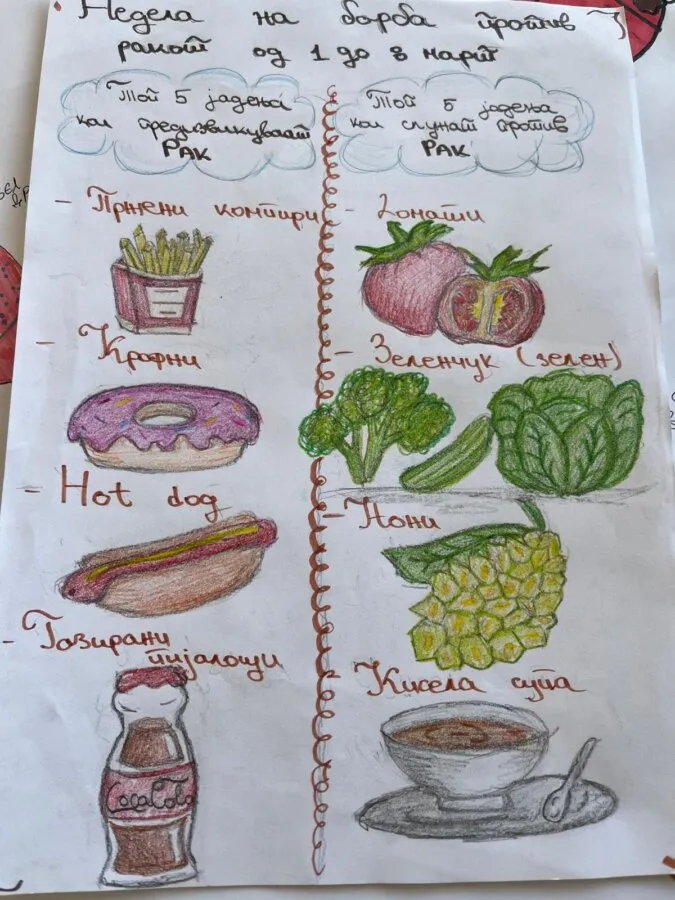 Недела на борба против
ракот од 1 до 8 март
Топ 5 јадења
кои предизвикуваат
РАК
Топ 5 јадења
кои служат против
РАК
- Пржени компири
- Крофни
- Hot dog
- Газирани
пијалоци
CocaCola
- Домати
- Зеленчук (зелен)
- Нони
Кисела супа